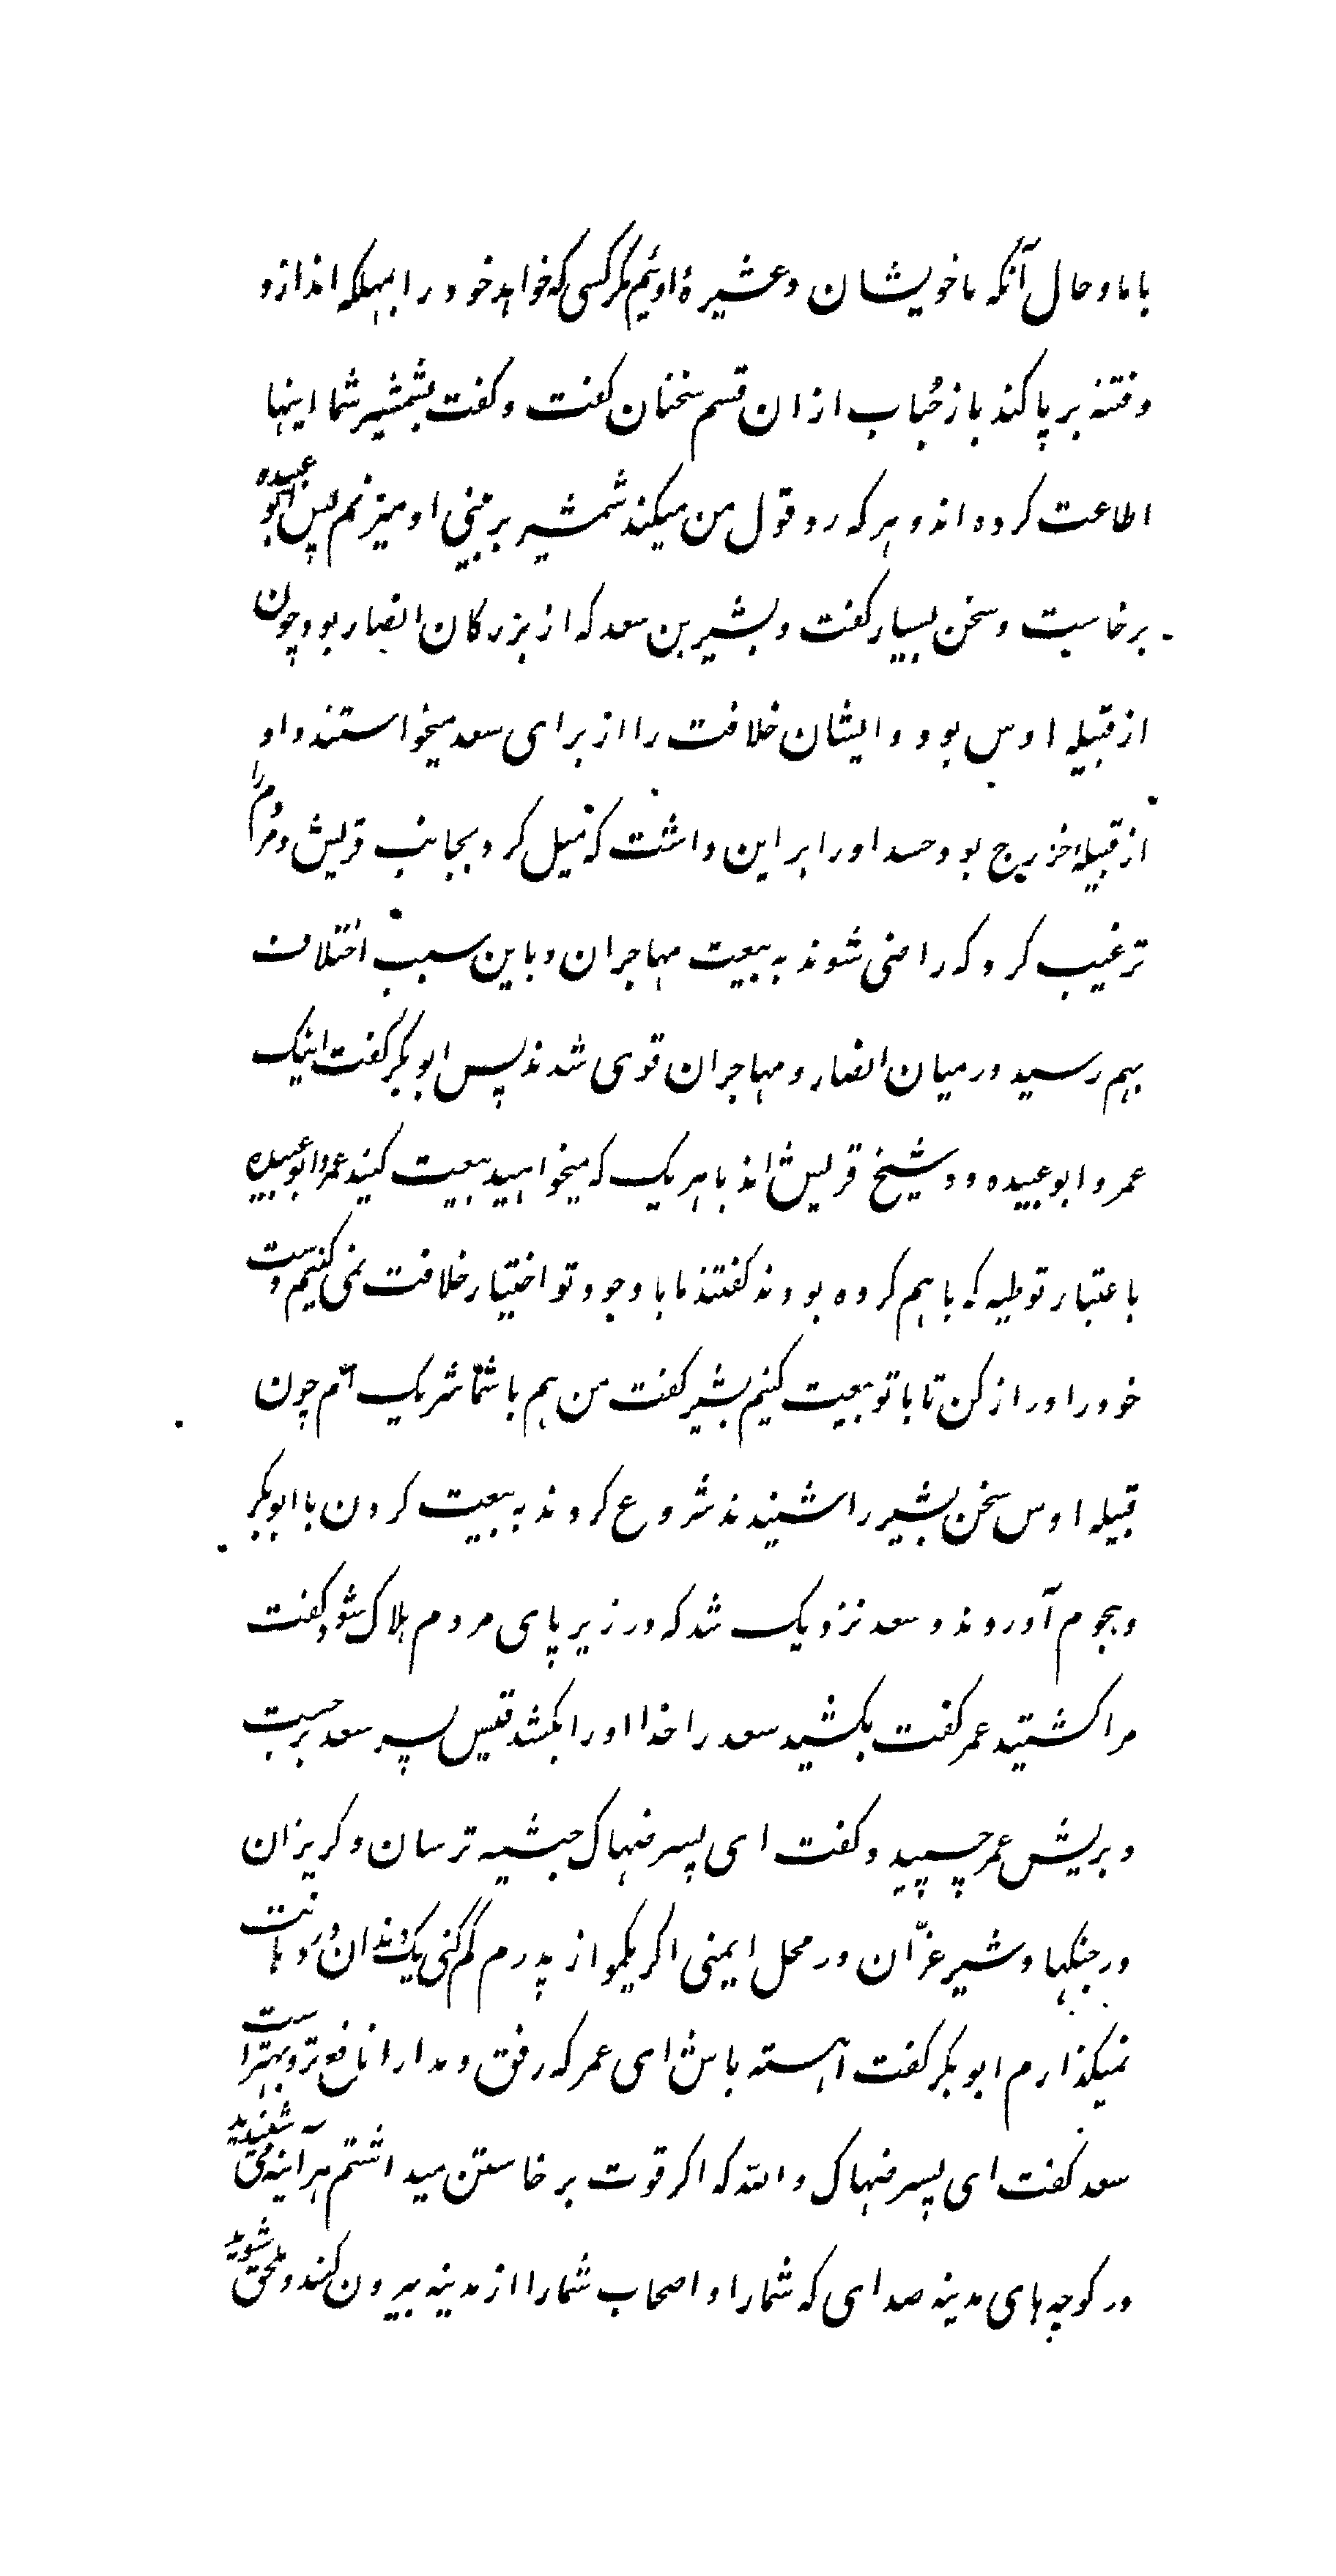 باما و حال آنکه ما خویشان و عشیرهٔ اوئیم مگر کسی که خواهد خود را بمهلکه اندازد
و فتنه برپا کند باز حُباب ازان قسم سخنان کفت و کفت بشمشیر شما اینها
اطاعت کرده اند و هر که رد قول من میکند شمشیر بر بینی او میزنم پس ابو عبیده
برخاست و سخن بسیار کفت و بشیر بن سعد که از بزرکان انصار بود چون
از قبیله اوس بود و ایشان خلافت را از برای سعد میخواستند و او
از قبیلهٔ خزرج بود حسد او را بر این داشت که میل کرد بجانب قریش و مردم را
ترغیب کرد که راضی شوند به بیعت مهاجران و باین سبب اختلاف
بهم رسید درمیان انصار و مهاجران قوی شدند پس ابو بکر کفت اینک
عمر و ابو عبیده دو شیخ قریش اند با هر یک که میخواهید بیعت کنید عمر و ابو عبیده
باعتبار توطیه که باهم کرده بودند کفتند ما با وجود تو اختیار خلافت نمی کنیم دست
خود را دراز کن تا با تو بیعت کنیم بشیر کفت من هم با شما شریک ام چون
قبیله اوس سخن بشیر را شنیدند شروع کردند به بیعت کردن با ابو بکر
و هجوم آوردند و سعد نزدیک شد که در زیر پای مردم هلاک شود کفت
مرا کشتید عمر کفت بکشید سعد را خدا او را بکشد قیس پسر سعد برجست
و بریش عمر چسپید و کفت ای پسر ضهاک حبشیه ترسان و کریزان
در جنکها و شیر غرّان در محل ایمنی اکر یکمو از پدرم کم کنی یک دندان در دهانت
نمیکذارم ابو بکر کفت اهسته باش ای عمر که رفق و مدارا نافع تر و بهتر است
سعد کفت ای پسر ضهاک و الله که اکر قوت برخاستن میداشتم هر آینه می شنیدید
در کوچه های مدینه صدای که شما را و اصحاب شما را از مدینه بیرون کند و ملحق شوید